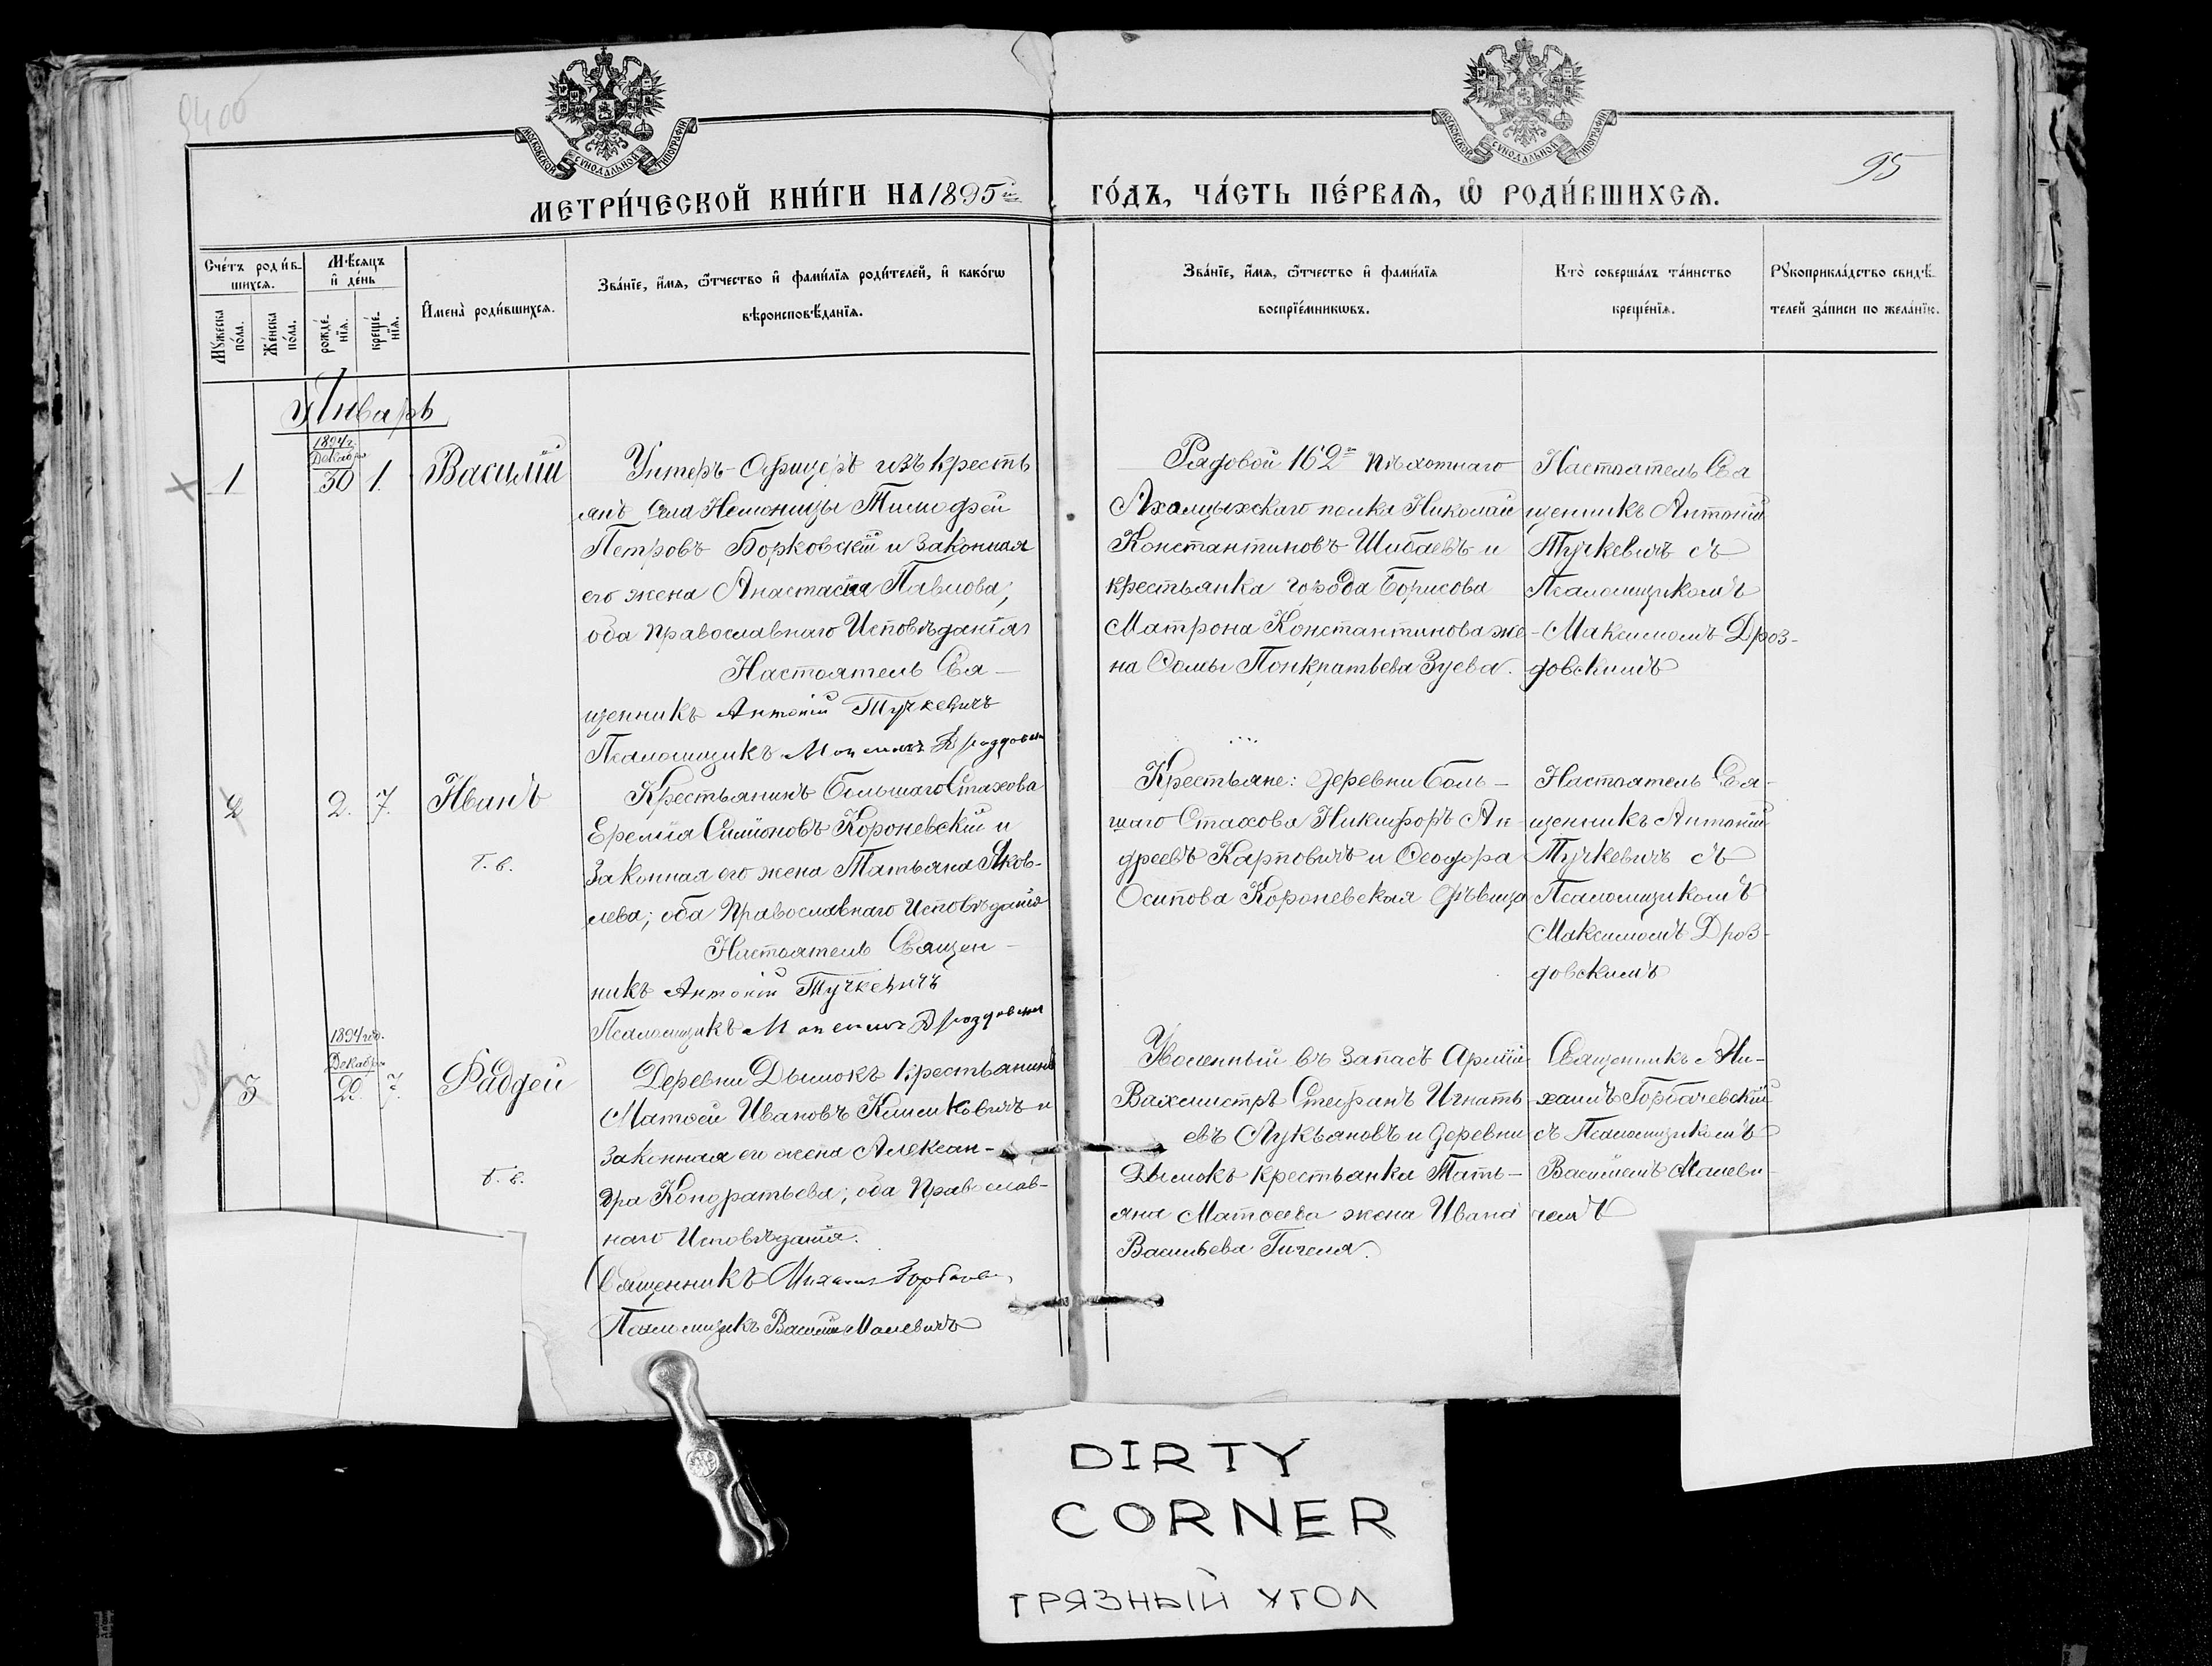 9400
МОСКОВСКОЙ СѴНОДАЛЬНОЙ ТИПОГРАФІИ
МОСКОВСКОЙ СѴНОДАЛЬНОЙ ТИПОГРАФІИ
95
МЕТРИ́ЧЕСКОЙ КНИ́ГИ НА 1895й
ГО́ДЪ, ЧА́СТЬ ПЕ́РВАЯ, Ѡ РОДИ́ВШИХСЯ.
Сче́тъ роди́в-
шихся.
Мѣсяцъ
и де́нь
Мꙋжеска
по́ла.
Же́нска
по́ла.
рожде́-
нїя.
креще́-
нїя.
Имена̀ роди́вшихся.
Зва́нїе, и́мя, ѻ́тчество и фами́лїя роди́телей, и како́гѡ
вѣроисповѣ́данїя.
Зва́нїе, и́мя, ѻ́тчество и фами́лїя
воспрїе́мникѡвъ.
Кто̀ соверша́лъ та́инство
креще́нїя.
Рꙋкоприкла́дство свидѣ́-
телей за́писи по жела́нїю.
Январь
1894г.
Декабря
1
30
1.
Василій
Унтеръ-Офицеръ изъ кресть
янъ села Немоницы Тимофей
Петровъ Борковскій и законная
его жена Анастасія Павлова;
оба Православнаго Исповѣданія
Настоятель Свя-
щенникъ Антоній Тучкевичъ
Псаломщикъ Максимъ Дроздовскій
Рядовой 162го пѣхотнаго
Ахалцыхскаго полка Николай
Константиновъ Шибаевъ и
крестьянка города Борисова
Матрона Константинова же-
на Фомы Понкратьева Зуева.
Настоятель Свя
щенникъ Антоній
Тучкевичъ съ
Псаломщикомъ
Максимомъ Дроз-
довскимъ
2
2.
7.
Иванъ
т. в.
Крестьянинъ Большаго Стахова
Еремія Симіоновъ Короневскій и
законная его жена Татьяна Яков-
лева; оба Православнаго Исповѣданія
Настоятель Священ-
никъ Антоній Тучкевичъ
Псаломщикъ Максимъ Дроздовскій
Крестьяне: деревни Боль-
шаго Стахова Никифоръ Ан-
дреевъ Карповичъ и Ѳеодора
Осипова Короневская дѣвица
Настоятель Свя-
щенникъ Антоній
Тучкевичъ съ
Псаломщикомъ
Максимомъ Дроз-
довскимъ
1894 год.
Декабря
3
29.
7.
Фаддей
т. в.
Деревни Дымокъ крестьянинъ
Матѳей Ивановъ и
законная его жена Алексан-
дра Кондратьева; оба Православ-
наго Исповѣданія.
Священникъ Михаилъ
Псаломщикъ Василій Малевичъ
Уволенный въ запасъ Арміи
Вахмистръ Стефанъ Игнать
евъ Лукьяновъ и деревни
Дымокъ крестьянка Тать-
яна Матѳеева жена Ивана
Васильева
Священникъ Ми-
хаилъ Горбачевскій
съ Псаломщикомъ
Василіемъ Малеви-
чемъ
DIRTY
CORNER
ГРЯЗНЫЙ УГОЛ